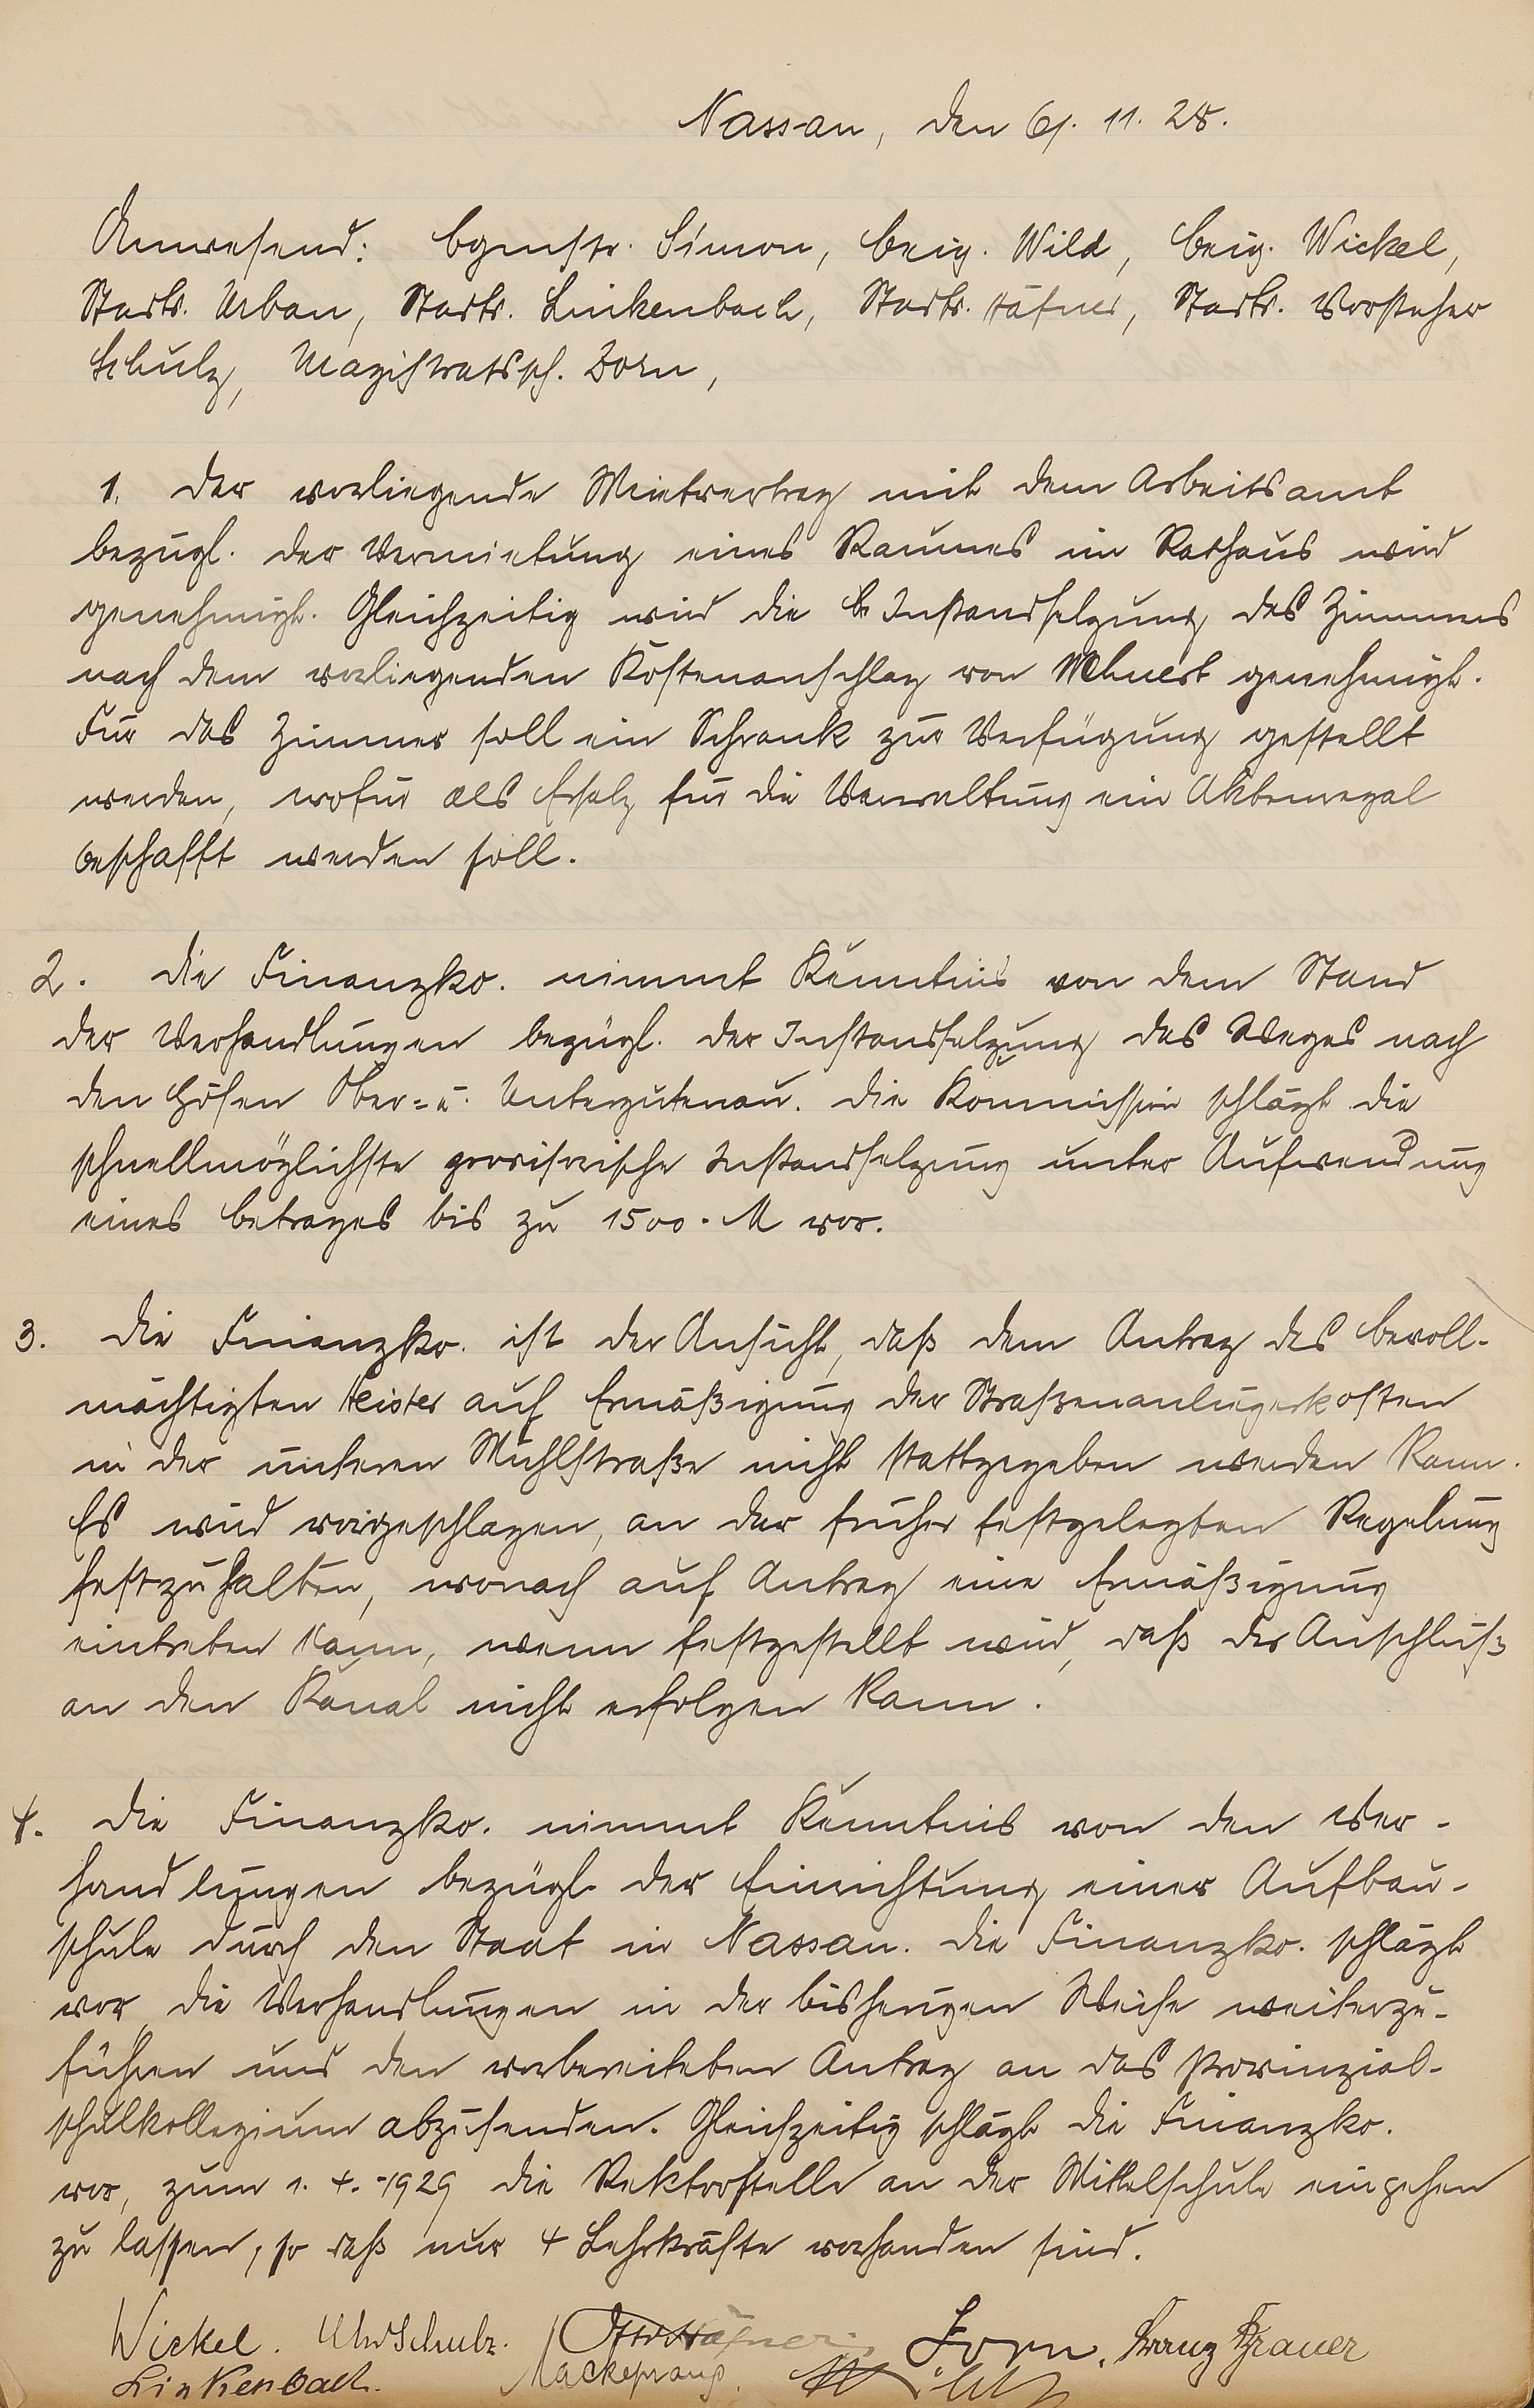 Nassau, den 6. 11. 28.
Anwesend: Bgmstr. Simon, Beig. Wild, Beig. Wickel,
Stadtv. Urban, Stadtv. Linkenbach, Stadtv. Häfner, Stadtv. Vorsteher
Schulz, Magistratssch. Zorn,
1. Der vorliegende Mietvertrag mit dem Arbeitsamt
bezügl. der Vermietung eines Raumes im Rathaus wird
genehmigt. Gleichzeitig wird die Instandsetzung des Zimmers
nach dem vorliegenden Kostenanschlag von Mehnert genehmigt.
Für das Zimmer soll ein Schrank zur Verfügung gestellt
werden, wofür als Ersatz für die Verwaltung ein Aktenregal
beschafft werden soll.
2. Die Finanzko. nimmt Kenntnis von dem Stand
der Verhandlungen bezügl. der Instandsetzung des Weges nach
den Höfen Ober- u. Unterguttenau. Die Kommission schlägt die
schnellmöglichste provisorische Instandsetzung unter Aufwendung
eines Betrages bis zu 1500.- M vor.
3. Die Finanzko. ist der Ansicht, daß dem Antrag des Bevoll-
mächtigten Heister auf Ermäßigung der Straßenanliegerkosten
in der unteren Mühlstraße nicht stattgegeben werden kann.
Es wird vorgeschlagen, an der früher festgelegten Regelung
festzuhalten, wonach auf Antrag eine Ermäßigung
eintreten kann, wenn festgestellt wird, daß der Anschluß
an den Kanal nicht erfolgen kann.
4. Die Finanzko. nimmt Kenntnis von den Ver-
handlungen bezügl. der Einrichtung einer Aufbau-
schule durch den Staat in Nassau. Die Finanzko. schlägt
vor, die Verhandlungen in der bisherigen Weise weiterzu-
führen und den vorbereiteten Antrag an das Provinzial-
schulkollegium abzusenden. Gleichzeitig schlägt die Finanzko.
vor, zum 1. 4. 1929 die Rektorstelle an der Mittelschule eingehen
zu lassen, so daß nur 4 Lehrkräfte vorhanden sind.
Wickel. Schulz. Otto Häfner Zorn. Franz Brauer
Linkenbach. Mackeprang.